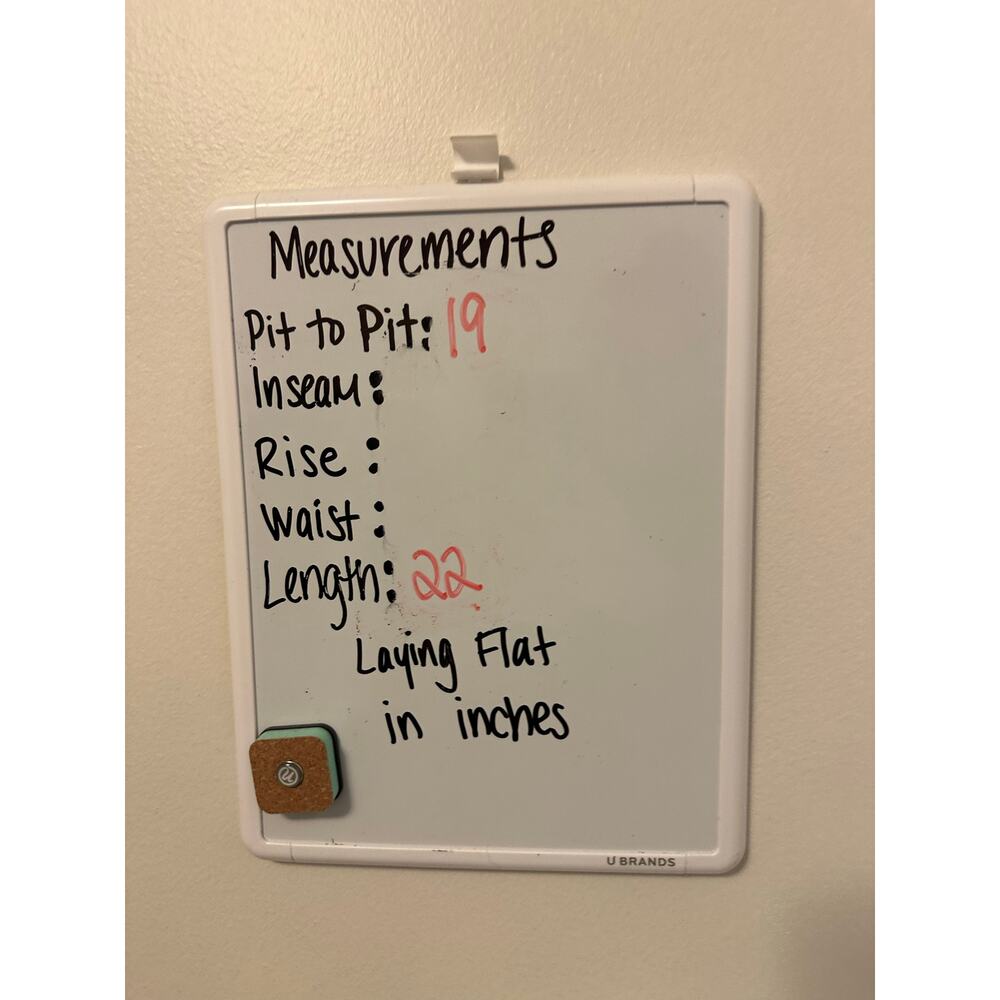 Measurements
Pit to Pit: 19
Inseam:
Rise :
Waist :
Length: 22
Laying Flat
in inches
U BRANDS